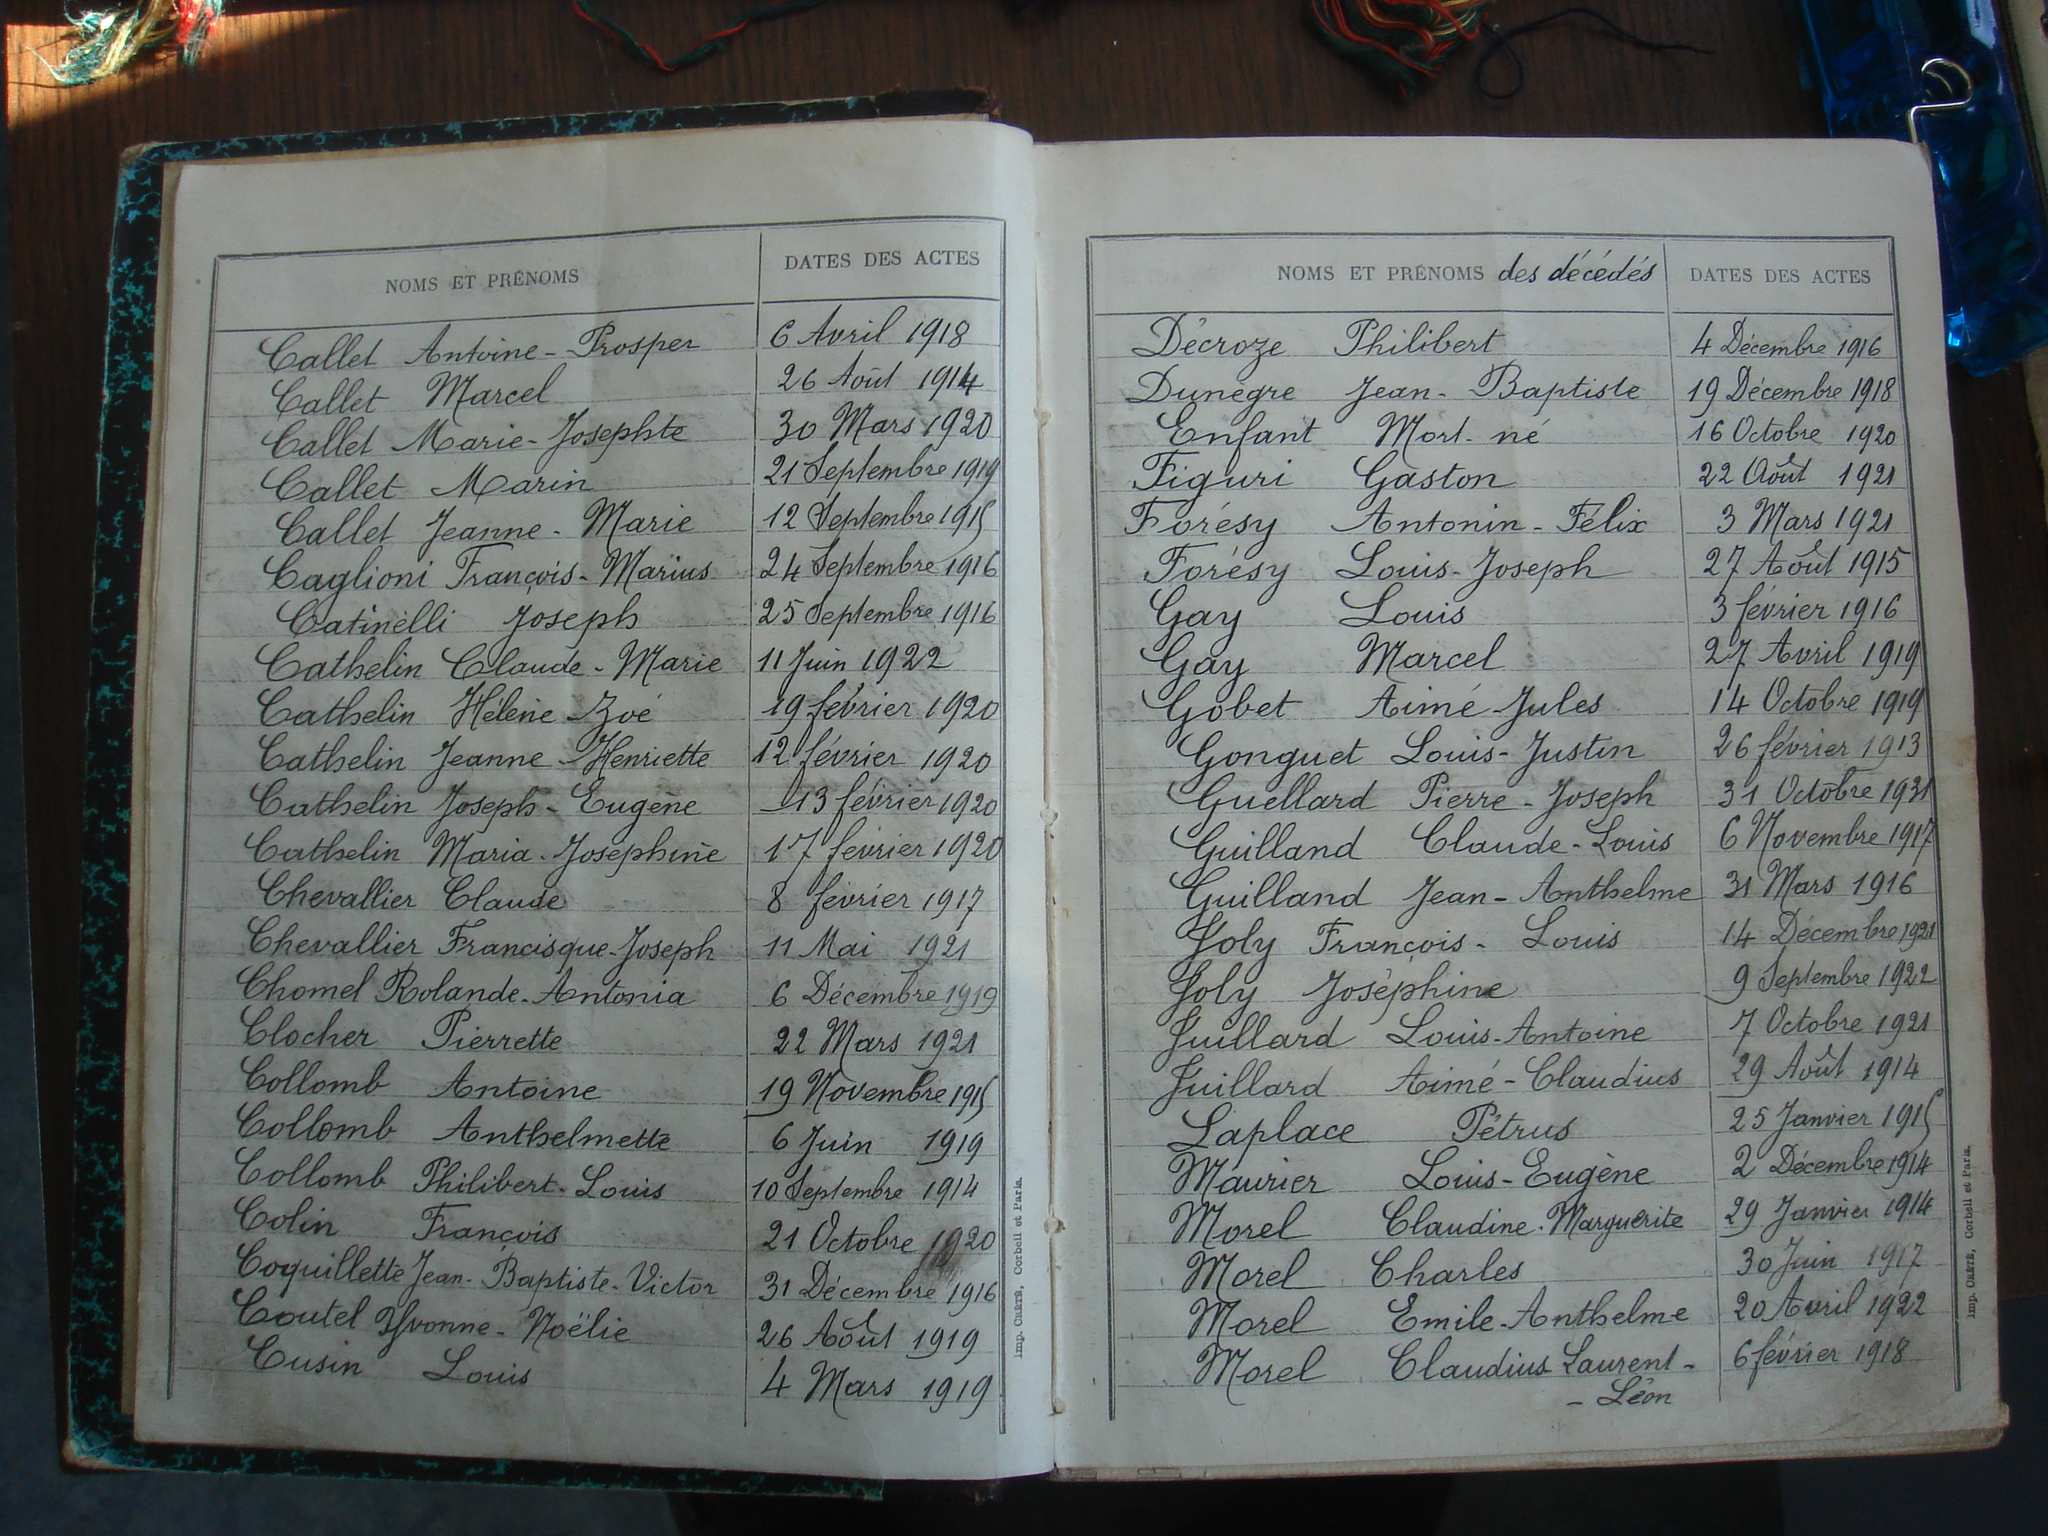 NOMS ET PRÉNOMS DATES DES ACTES
Callet Antoine-Prosper 6 Avril 1918
Callet Marcel 26 Août 1914
Callet Marie-Josephte 30 Mars 1920
Callet Marin 21 Septembre 1919
Callet Jeanne-Marie 12 Septembre 1915
Caglioni François-Marius 24 Septembre 1916
Catinelli Joseph 25 Septembre 1916
Cathelin Claude-Marie 11 Juin 1922
Cathelin Hélène-Zoé 19 février 1920
Cathelin Jeanne-Henriette 12 février 1920
Cathelin Joseph-Eugène 13 février 1920
Cathelin Maria-Josephine 17 février 1920
Chevallier Claude 8 février 1917
Chevallier Francisque-Joseph 11 Mai 1921
Chomel Rolande-Antonia 6 Décembre 1919
Clocher Pierrette 22 Mars 1921
Collomb Antoine 19 Novembre 1915
Collomb Anthelmette 6 Juin 1919
Collomb Philibert-Louis 10 Septembre 1914
Colin François 21 Octobre 1920
Coquillette Jean-Baptiste-Victor 31 Décembre 1916
Coutel Yvonne-Noëlie 26 Août 1919
Cusin Louis 4 Mars 1919
Imp. CRÉTÉ, Corbeil et Paris.
NOMS ET PRÉNOMS des décédés DATES DES ACTES
Décroze Philibert 4 Décembre 1916
Dunègre Jean-Baptiste 19 Décembre 1918
Enfant Mort-né 16 Octobre 1920
Figuri Gaston 22 Août 1921
Forésy Antonin-Félix 3 Mars 1921
Forésy Louis-Joseph 27 Août 1915
Gay Louis 3 février 1916
Gay Marcel 27 Avril 1919
Gobet Aimé-Jules 14 Octobre 1919
Gonguet Louis-Justin 26 février 1913
Guellard Pierre-Joseph 31 Octobre 1921
Guilland Claude-Louis 6 Novembre 1917
Guilland Jean-Anthelme 31 Mars 1916
Joly François-Louis 14 Décembre 1921
Joly Joséphine 9 Septembre 1922
Juillard Louis-Antoine 7 Octobre 1921
Juillard Aimé-Claudius 29 Août 1914
Laplace Pétrus 25 Janvier 1915
Maurier Louis-Eugène 2 Décembre 1914
Morel Claudine-Marguerite 29 Janvier 1914
Morel Charles 30 Juin 1917
Morel Emile-Anthelme 20 Avril 1922
Morel Claudius Laurent- 6 février 1918
- Léon
Imp. CRÉTÉ, Corbeil et Paris.